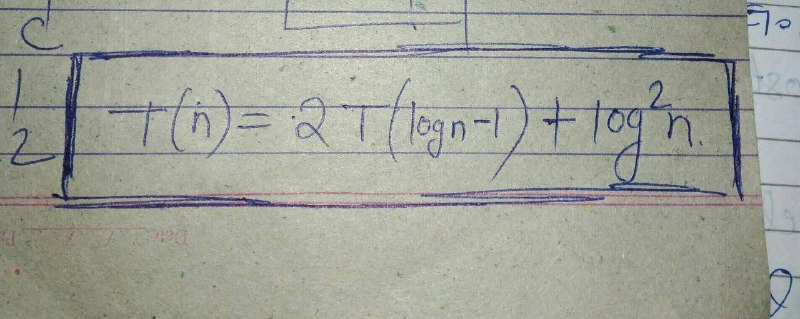 C
1
2
T(n) = 2T(logn-1) + log²n.